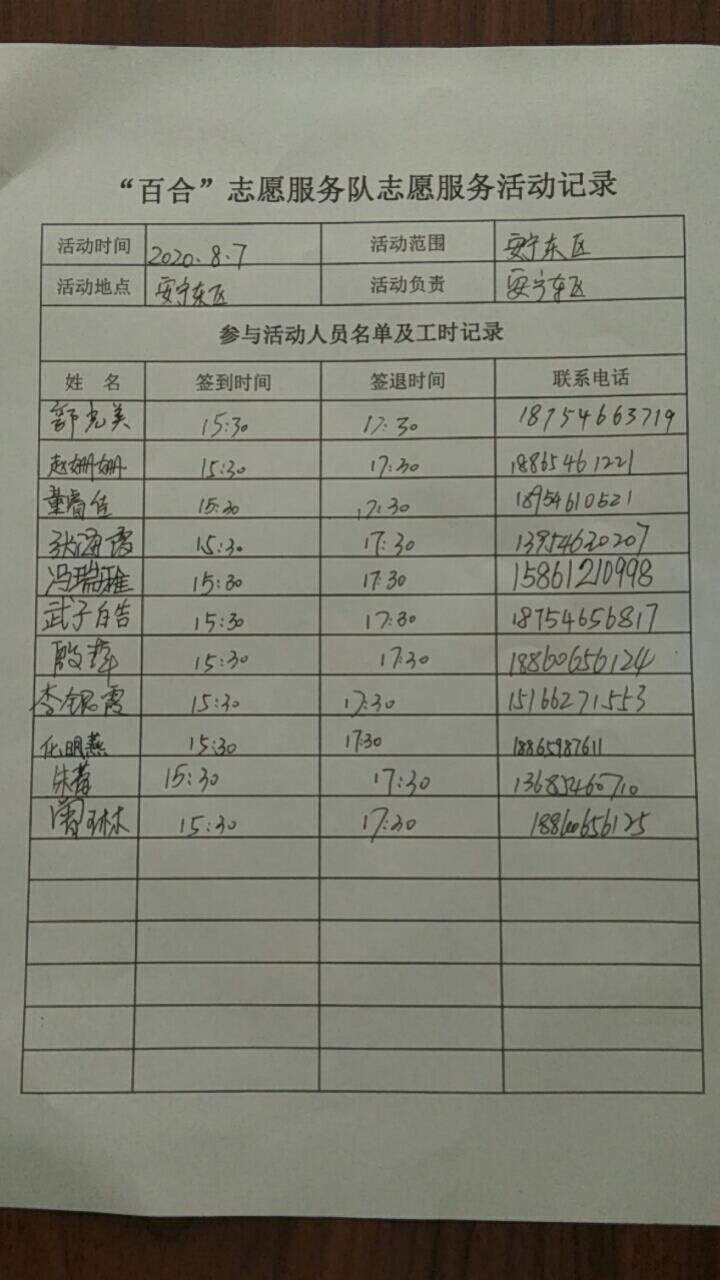 “百合”志愿服务队志愿服务活动记录
活动时间 2020.8.7 活动范围 安宁东区
活动地点 安宁东区 活动负责 安宁东区
参与活动人员名单及工时记录
姓 名 签到时间 签退时间 联系电话
郭光美 15:30 17:30 18754663719
赵姗姗 15:30 17:30 18865461221
董睿佳 15:30 17:30 18954610521
张海霞 15:30 17:30 13954620207
冯瑞雅 15:30 17:30 15861210998
武子皓 15:30 17:30 18754656817
殷萍 15:30 17:30 18860656124
李银霞 15:30 17:30 15166271553
化明燕 15:30 17:30 18865987611
朱莓 15:30 17:30 13685460710
曾琳 15:30 17:30 18860656125